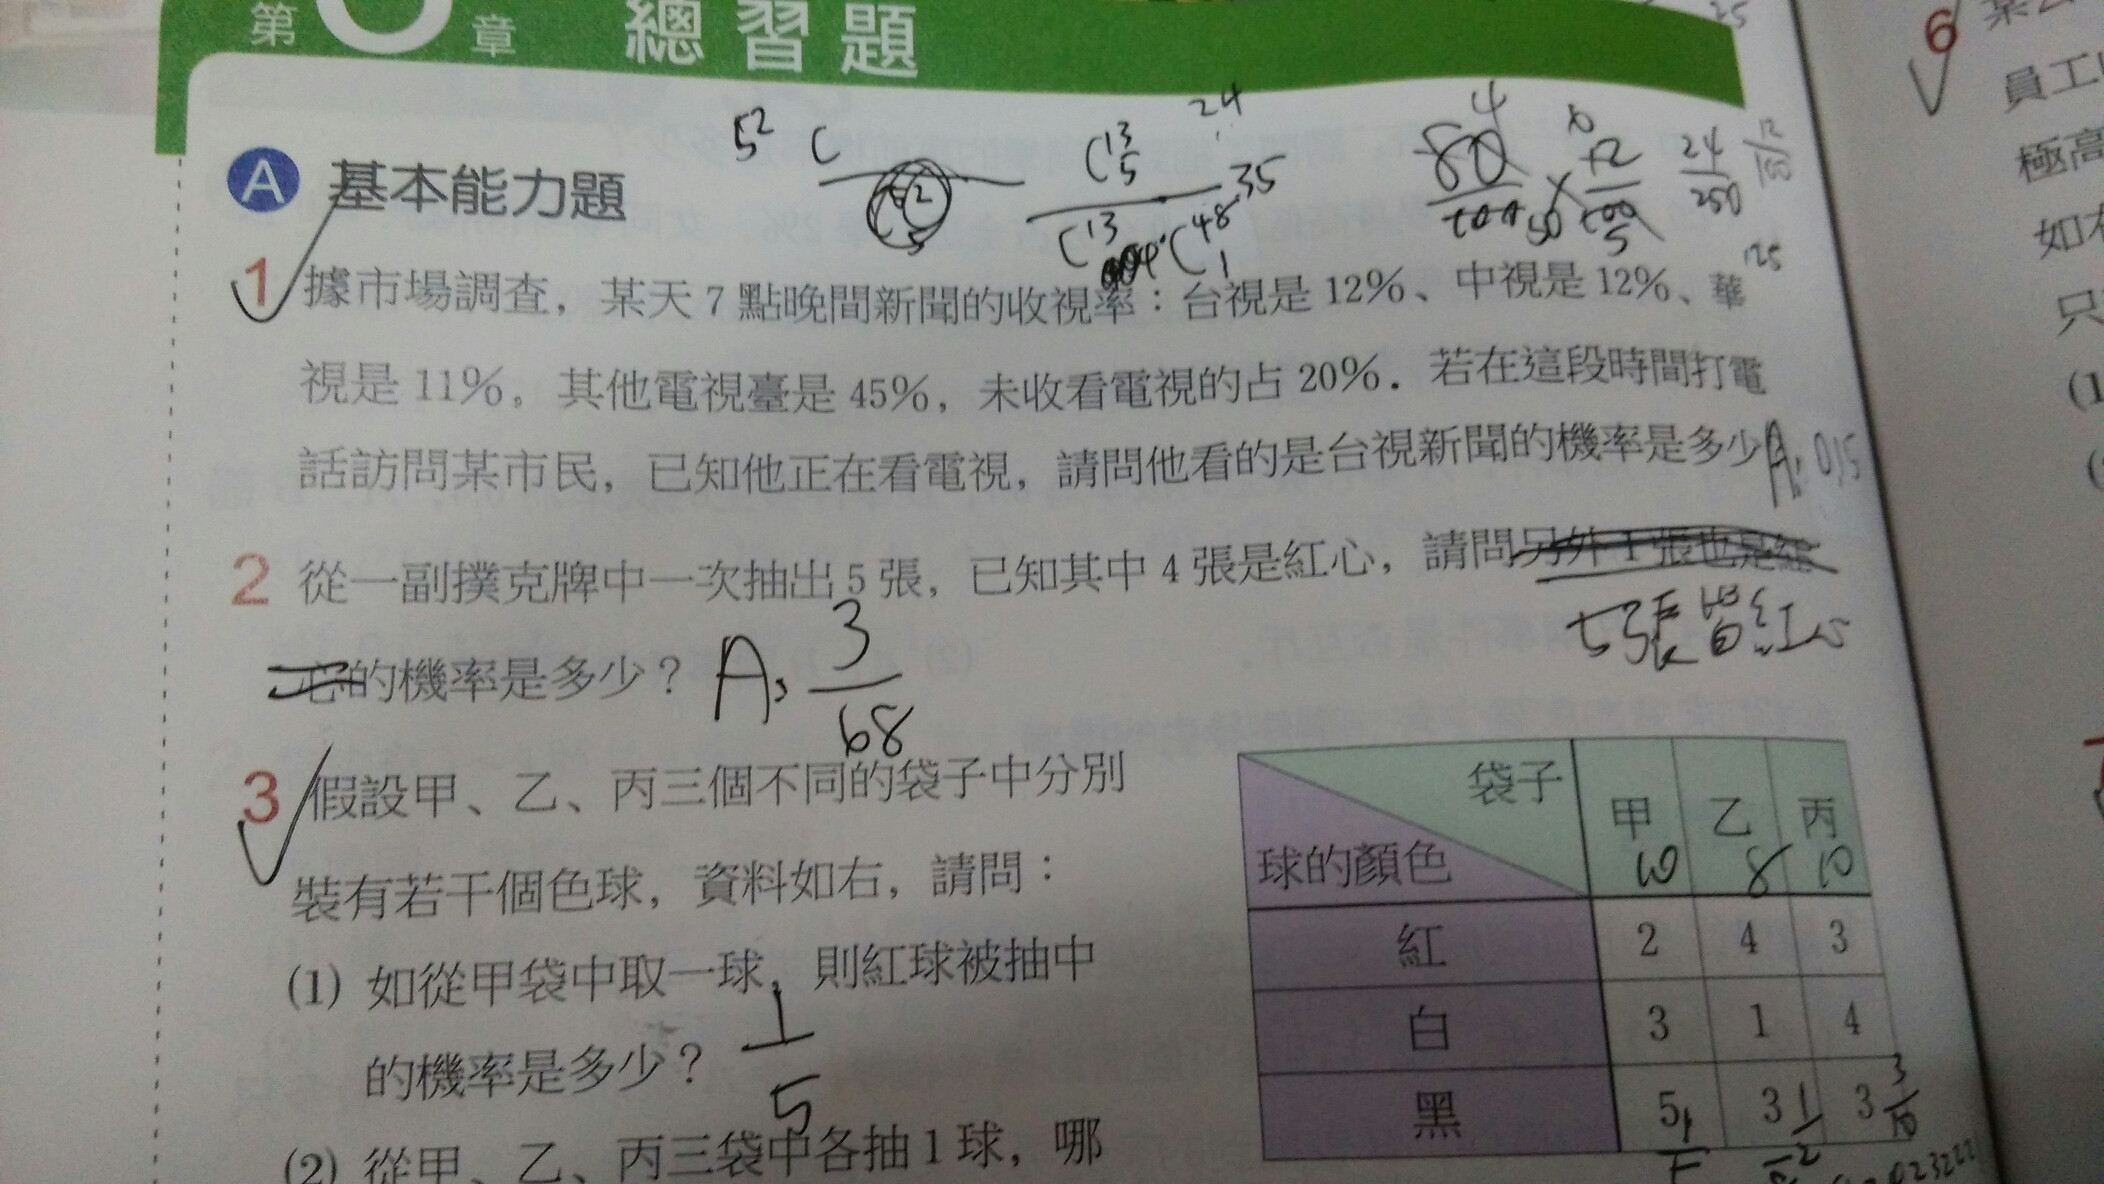 第 章 總習題
A 基本能力題
5² C
C 13 5
C 13 4 C 48 1
24
35
80 12
24
250
125
1 據市場調查，某天7點晚間新聞的收視率：台視是12%、中視是12%、華
視是11%。其他電視臺是45%，未收看電視的占20%．若在這段時間打電
話訪問某市民，已知他正在看電視，請問他看的是台視新聞的機率是多少 A: 0.15
2 從一副撲克牌中一次抽出5張，已知其中4張是紅心，請問另外1張也是紅
5張皆紅心
心的機率是多少？ A, 3/68
3 假設甲、乙、丙三個不同的袋子中分別
裝有若干個色球，資料如右，請問：
(1) 如從甲袋中取一球，則紅球被抽中
的機率是多少？ 1/5
(2) 從甲、乙、丙三袋中各抽1球，哪
袋子 甲 乙 丙
球的顏色 10 8 10
紅 2 4 3
白 3 1 4
黑 5 3 3
1 1/2 3/10
6
員工
極高
如右
只
(1
(